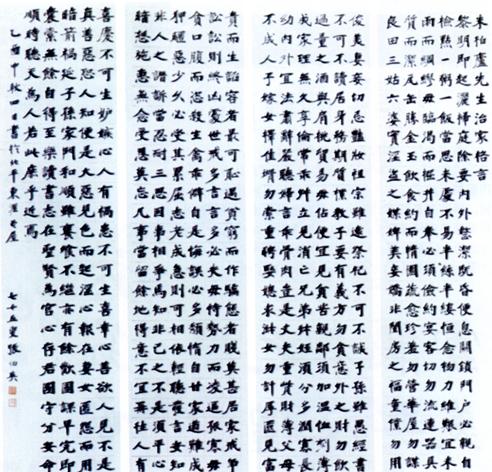 朱柏廬先生治家格言
黎明即起灑掃庭除要內外整潔既昏便息關鎖門户必親自
檢點一粥一飯當思來處不易半絲半縷恒念物力維艱宜未
雨而綢繆毋臨渴而掘井自奉必須儉約宴客切勿流連器具
質而潔瓦缶勝金玉飲食約而精園蔬愈珍饈勿營華屋勿謀
良田三姑六婆實淫盜之媒婢美妾嬌非閨房之福童僕勿用
俊美妻妾切忌艷妝祖宗雖遠祭祀不可不誠子孫雖愚經書
不可不讀居身務期質樸教子要有義方勿貪意外之財勿飲
過量之酒與肩挑貿易毋佔便宜見貧苦親鄰須加溫恤刻薄
成家理無久享倫常乖舛立見消亡兄弟叔姪須分多潤寡長
幼內外宜法肅辭嚴聽婦言乖骨肉豈是丈夫重貲財薄父母
不成人子嫁女擇佳壻勿索重聘娶媳求淑女勿計厚奩見富
貴而生諂容者最可恥遇貧窮而作驕態者賤莫甚居家戒爭
訟訟則終凶處世戒多言言多必失毋恃勢力而凌逼孤寡毋
貪口腹而恣殺生禽乖僻自是悔誤必多頹惰自甘家道難成
狎暱惡少久必受其累屈志老成急則可相依輕聽發言安知
非人之譖訴當忍耐三思因事相爭焉知非己之不是須平心
暗想施惠無念受恩莫忘凡事當留餘地得意不宜再往人有
喜慶不可生妒嫉心人有禍患不可生喜幸心善欲人見不是
真善惡恐人知便是大惡見色而起淫心報在妻女匿怨而用
暗箭禍延子孫家門和順雖饔飧不繼亦有餘歡國課早完即
囊橐無餘自得至樂讀書志在聖賢爲官心存君國守分安命
順時聽天爲人若此庶乎近焉
乙酉中秋四日書於北平東老屋
七十五叟張伯英